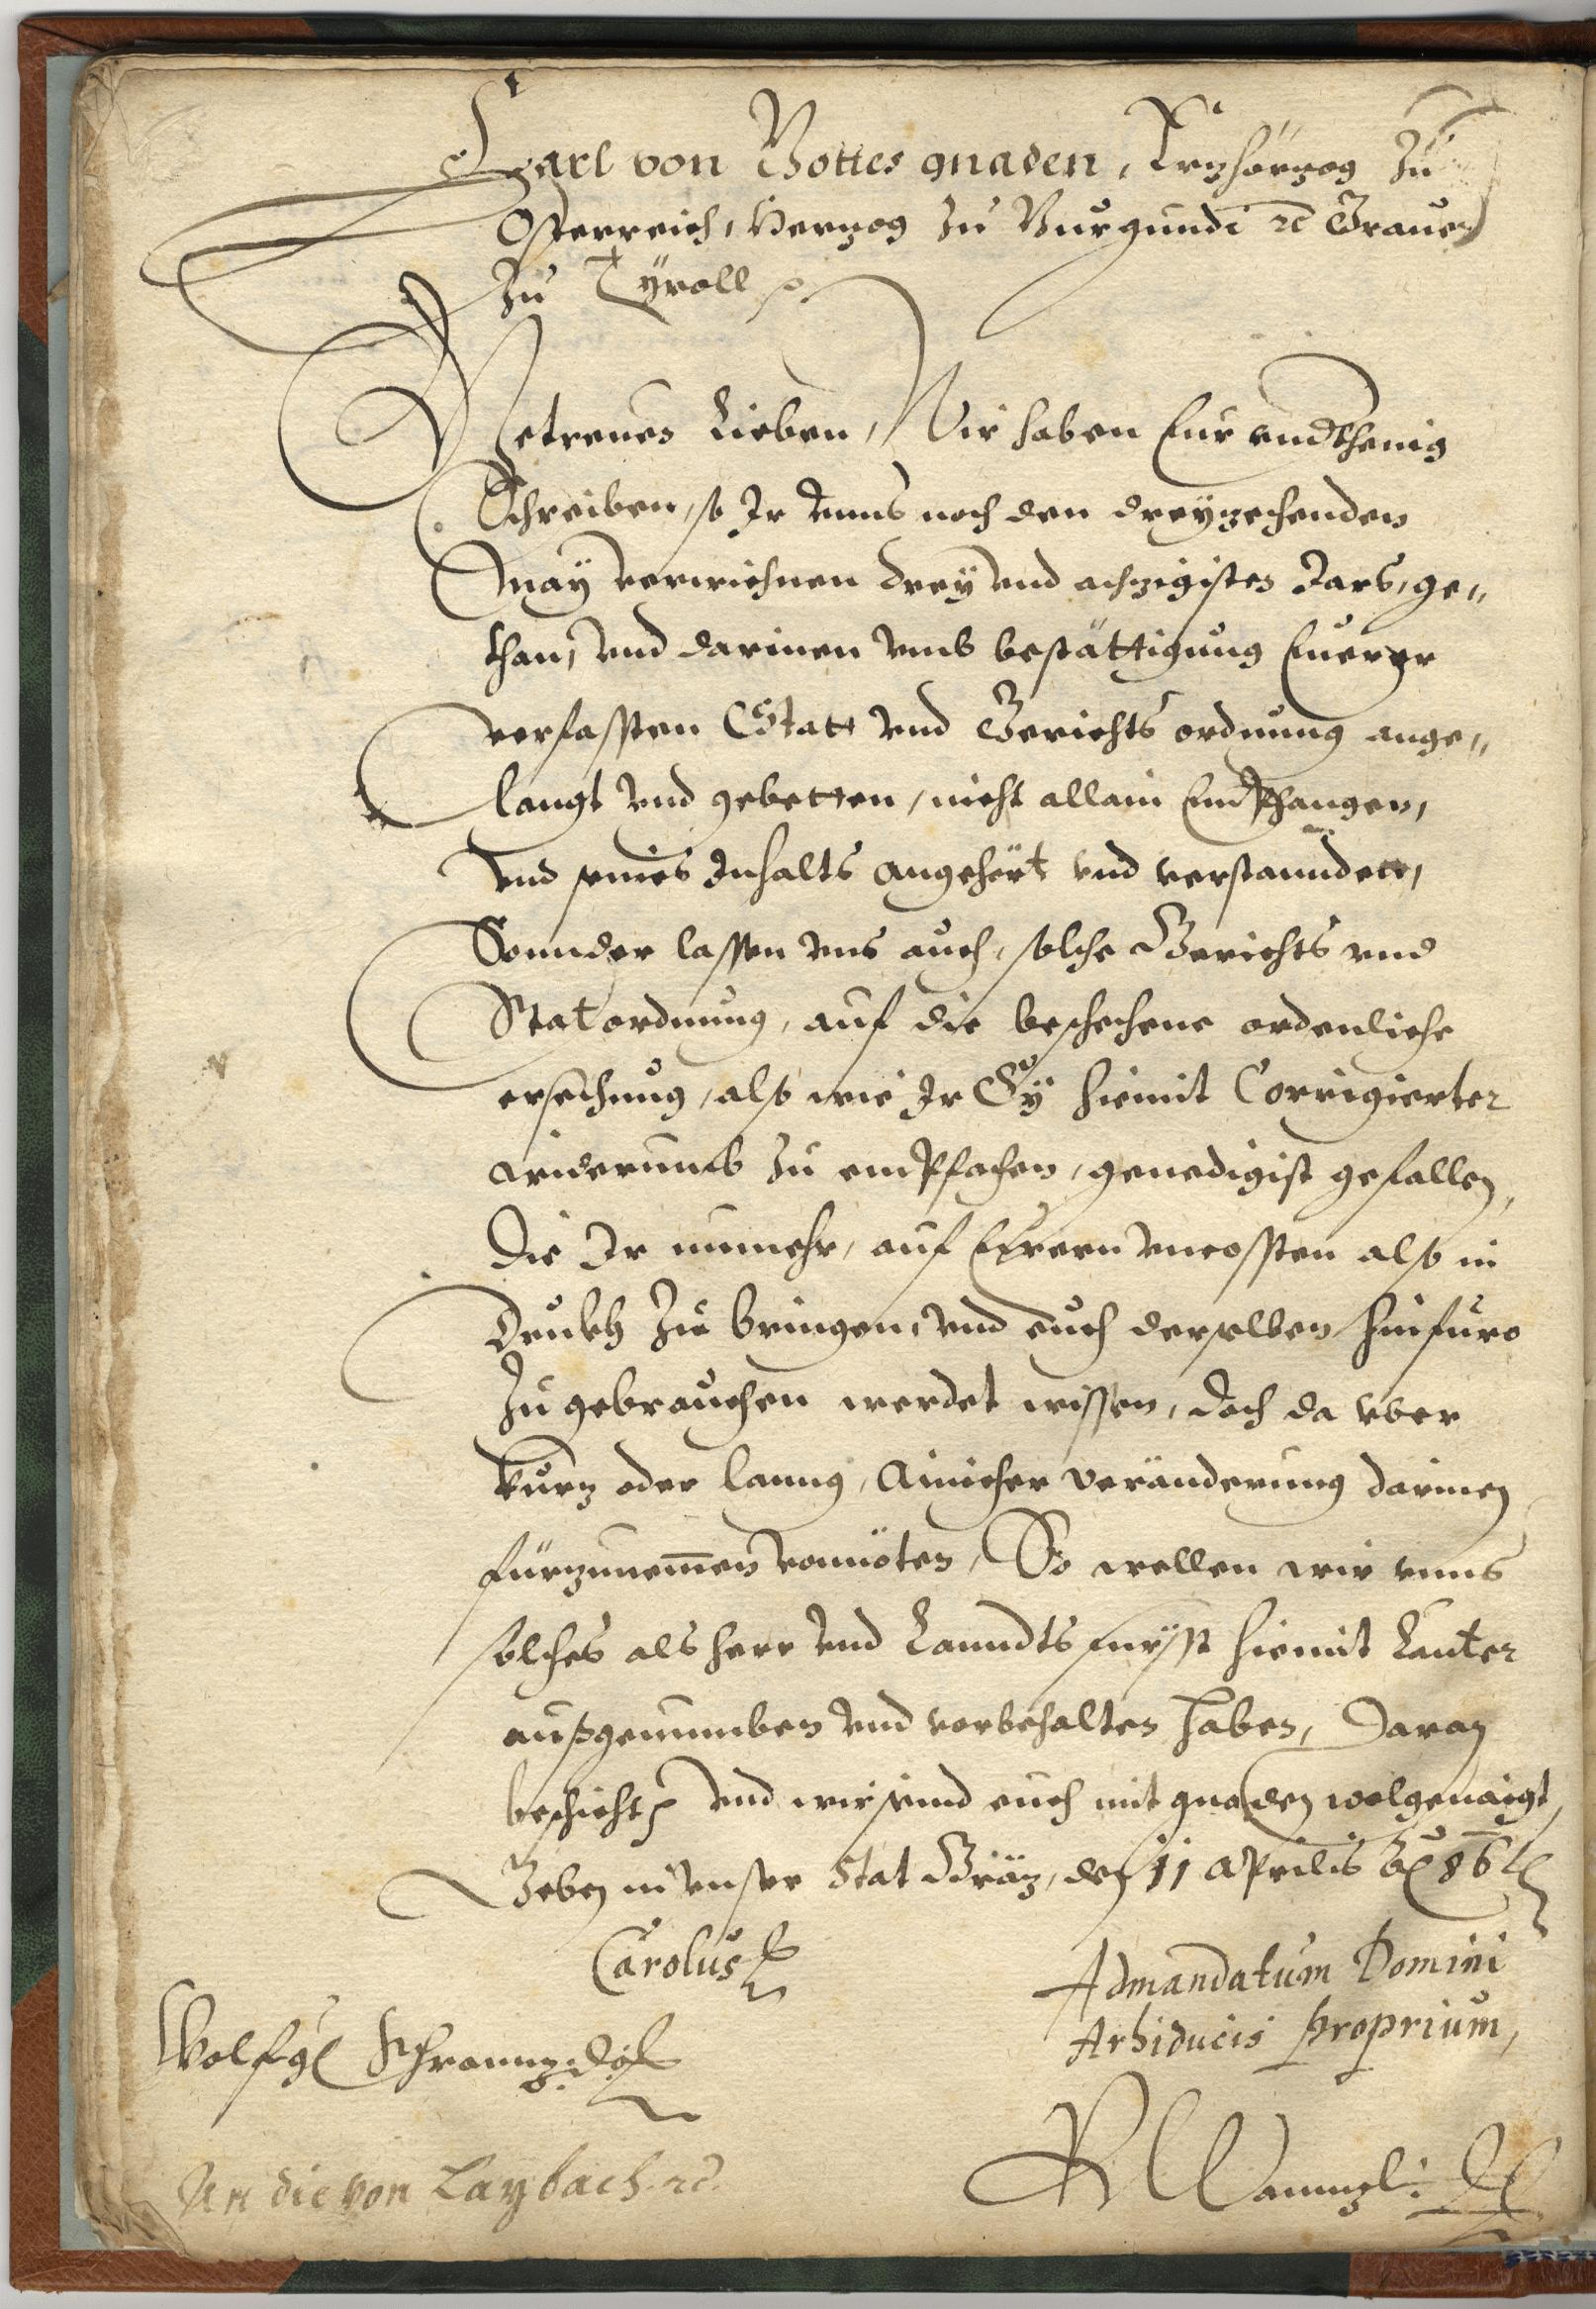 Carl von Gottes gnaden, Erzherzog zu
Osterreich, Herzog zu Burgundi rc Grauen
zu Tÿroll rc.
Getreuen Lieben, Wir haben Eur undthenig
Schreiben, so Ir unns noch den dreyzechenden
May verwichnen drey und achzigisten Jars, ge„
than, und darinen umb bestättigung Eurer
verfassten Statt und Gerichts ordnung ange„
langt und gebetten, nicht allain Emphangen,
und seines Inhalts angehört und verstannden,
Sonnder lassen uns auch, solche Gerichts und
Statordnung, auf die beschechene ordenliche
ersechung, also wie Ir Sÿ hiemit Corrigierter
widerumb zu emphachen, genedigist gefallen,
Die Ir nunmehr, auf Eueren uncossten also in
Drukh zu bringen, und euch derselben hinfuro
zu gebrauchen werdet wissen, doch da uber
kurz oder lanng, Ainicher veränderung darinen
fürzunemen vonnöten, So wellen wir unns
solches als herr und Lanndtsfürsst hiemit Lauter
außgenumben und vorbehalten haben, Daran
beschicht rc und wir seind euch mit gnaden wolgenaigt,
Geben in unser Stat Gräz, den 11 Aprilis Ao 86
Carolus
Admandatum Domini
Arhiducis proprium,
Wolfg Schrannz:
An die von Laybach. rc.